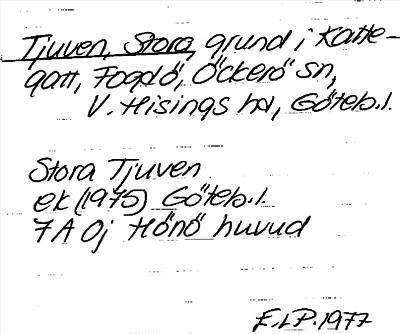 Tjuven, Stora, grund i Katte-
gatt, Fogdö, Öckerö sn,
V. Hisings hd, Göteb. l.
Stora Tjuven
ek (1975) Göteb. l.
7 A 0j Hönö huvud
E.LP. 1977